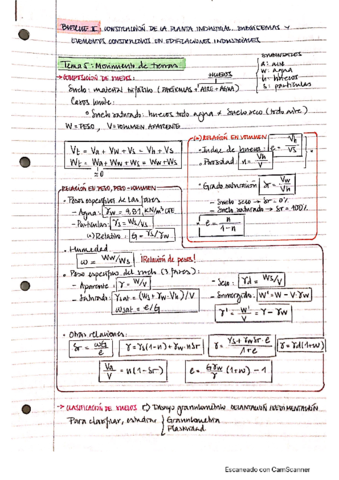 BLOQUE II: CONSTITUCIÓN DE LA PLANTA INDUSTRIAL. INGENIERÍAS Y
ELEMENTOS CONSTRUCTIVOS EN EDIFICACIONES INDUSTRIALES
Tema 5: Movimiento de tierras
SUBÍNDICES
A: aire
W: agua
H: huecos
S: partículas
→ COMPOSICIÓN DE SUELOS:
HUECOS
Suelo: material trifásico (PARTÍCULAS + AIRE + AGUA)
Casos límite:
Suelo saturado: huecos todo agua ≠ Suelo seco (todo aire)
W = PESO, V = VOLUMEN APARENTE
Vt = VA + VW + VS = VH + VS
Wt = WA + WW + WS = WH + WS
=0
(*) RELACIÓN EN VOLUMEN
- Índice de huecos: e = Vh/VS
- Porosidad: n = Vh/V
- Grado saturación: Sr = VW/Vh
- Suelo seco → Sr = 0%
- Suelo saturado → Sr = 100%
e = n/1-n
RELACIÓN EN PESO, PESO-VOLUMEN
- Pesos específicos de las fases
- Agua: γW = 9,81 KN/m³
- Partículas: γS = WS/VS
Relativo: G = γS/γW
- Humedad
ω = WW/WS ¡Relación de pesos!
- Peso específico del suelo (3 fases):
- Aparente: γ = W/V
- Seco: γd = WS/V
- Saturado: γsat = (WS + γW·Vh)/V
- Sumergido: W' = W - V·γW
ωsat = e/G
γ' = W'/V = γ - γW
- Otras relaciones:
Sr = ωG/e
γ = γS(1-n) + γW·nSr
γ = γS + γW Sr·e/1+e
γ = γd(1+ω)
VA/V = n(1-Sr)
e = GγW/γ (1+ω) - 1
→ CLASIFICACIÓN DE SUELOS
Para clasificar, estudiar Granulometría
Plasticidad
Escaneado con CamScanner